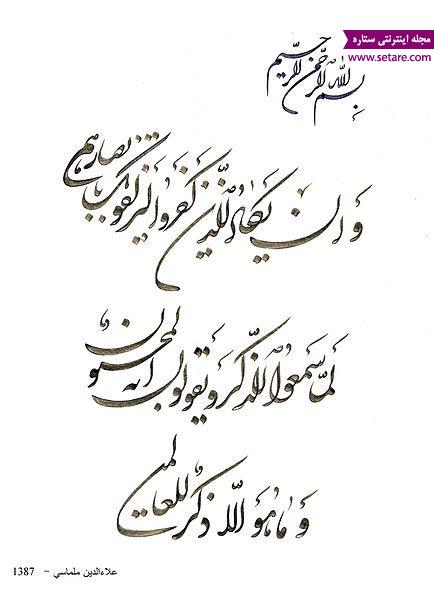 مجله اینترنتی ستاره
www.setare.com
بسم الله الرحمن الرحیم
و ان یکاد الذین کفروا لیزلقونک بابصارهم
لما سمعوا الذکر و یقولون انه لمجنون
و ما هو الا ذکر للعالمین
علاءالدین ملماسي - 1387